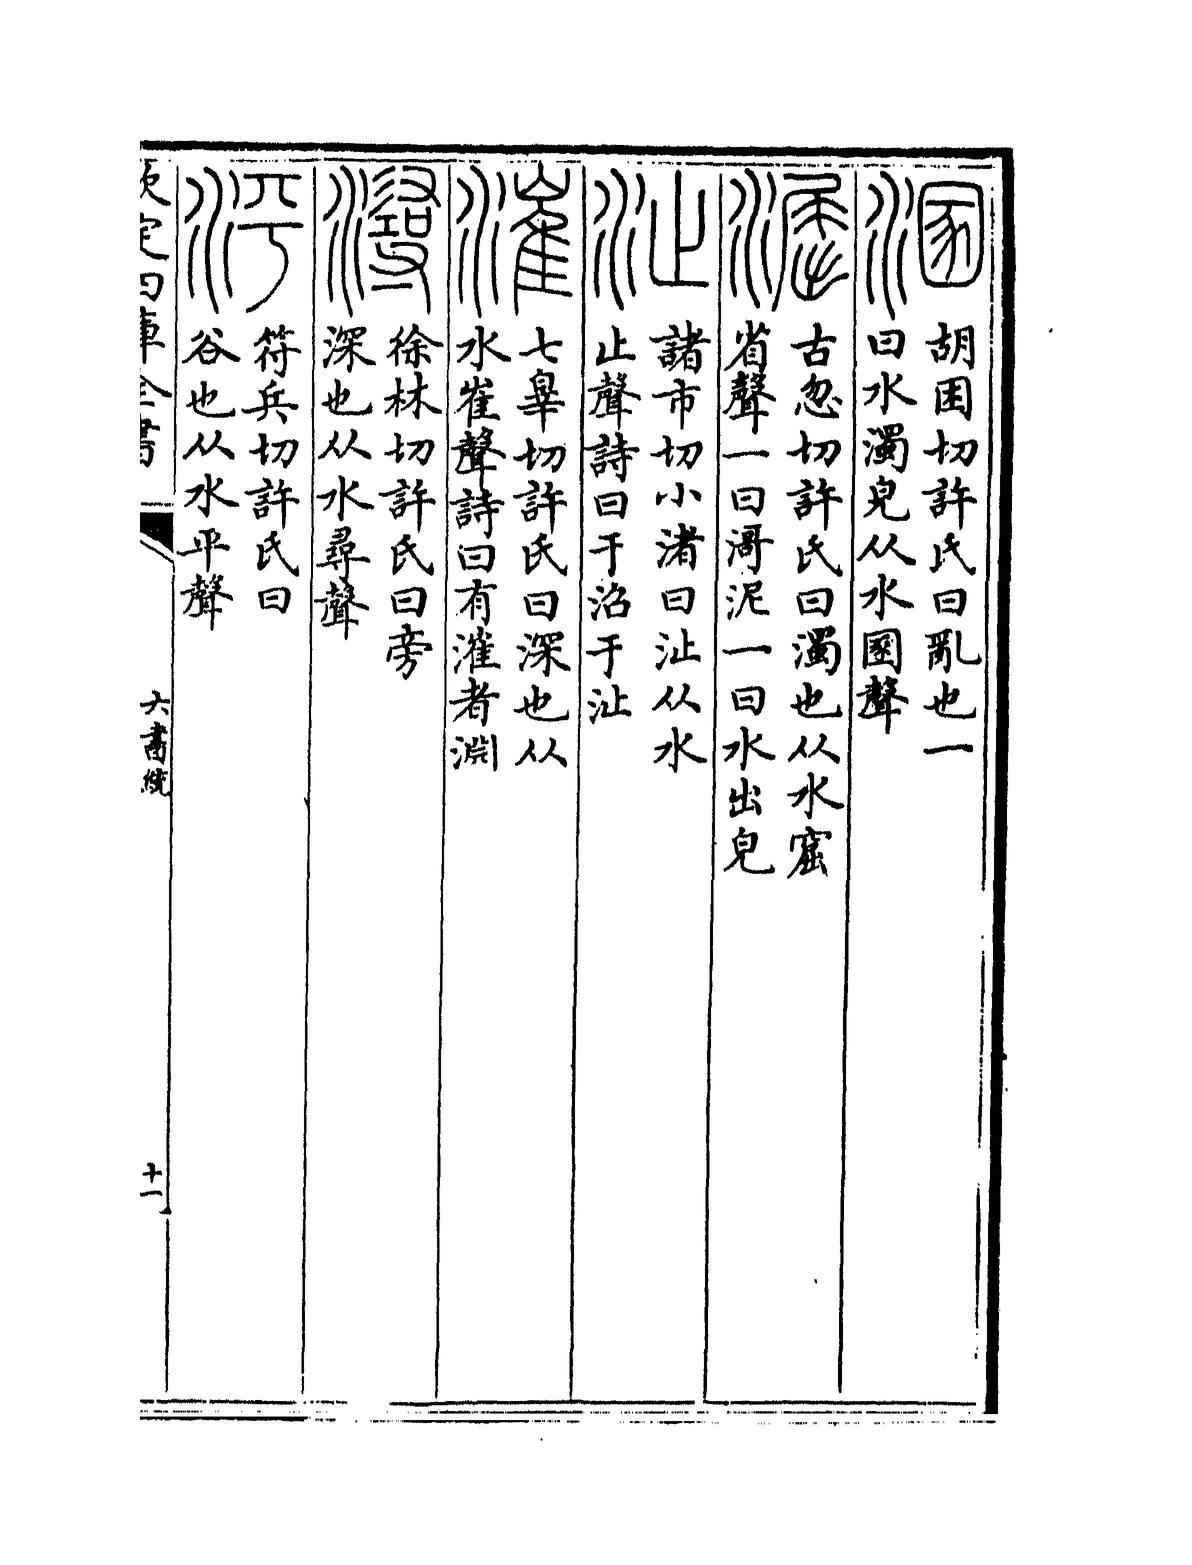 溷
胡困切許氏曰亂也一
曰水濁皃从水圂聲
淈
古忽切許氏曰濁也从水窟
省聲一曰滒泥一曰水出皃
沚
諸市切小渚曰沚从水
止聲詩曰于沼于沚
漼
七辠切許氏曰深也从
水崔聲詩曰有漼者淵
潯
徐林切許氏曰旁
深也从水尋聲
泙
符兵切許氏曰
谷也从水平聲
欽定四庫全書
六書統
十一